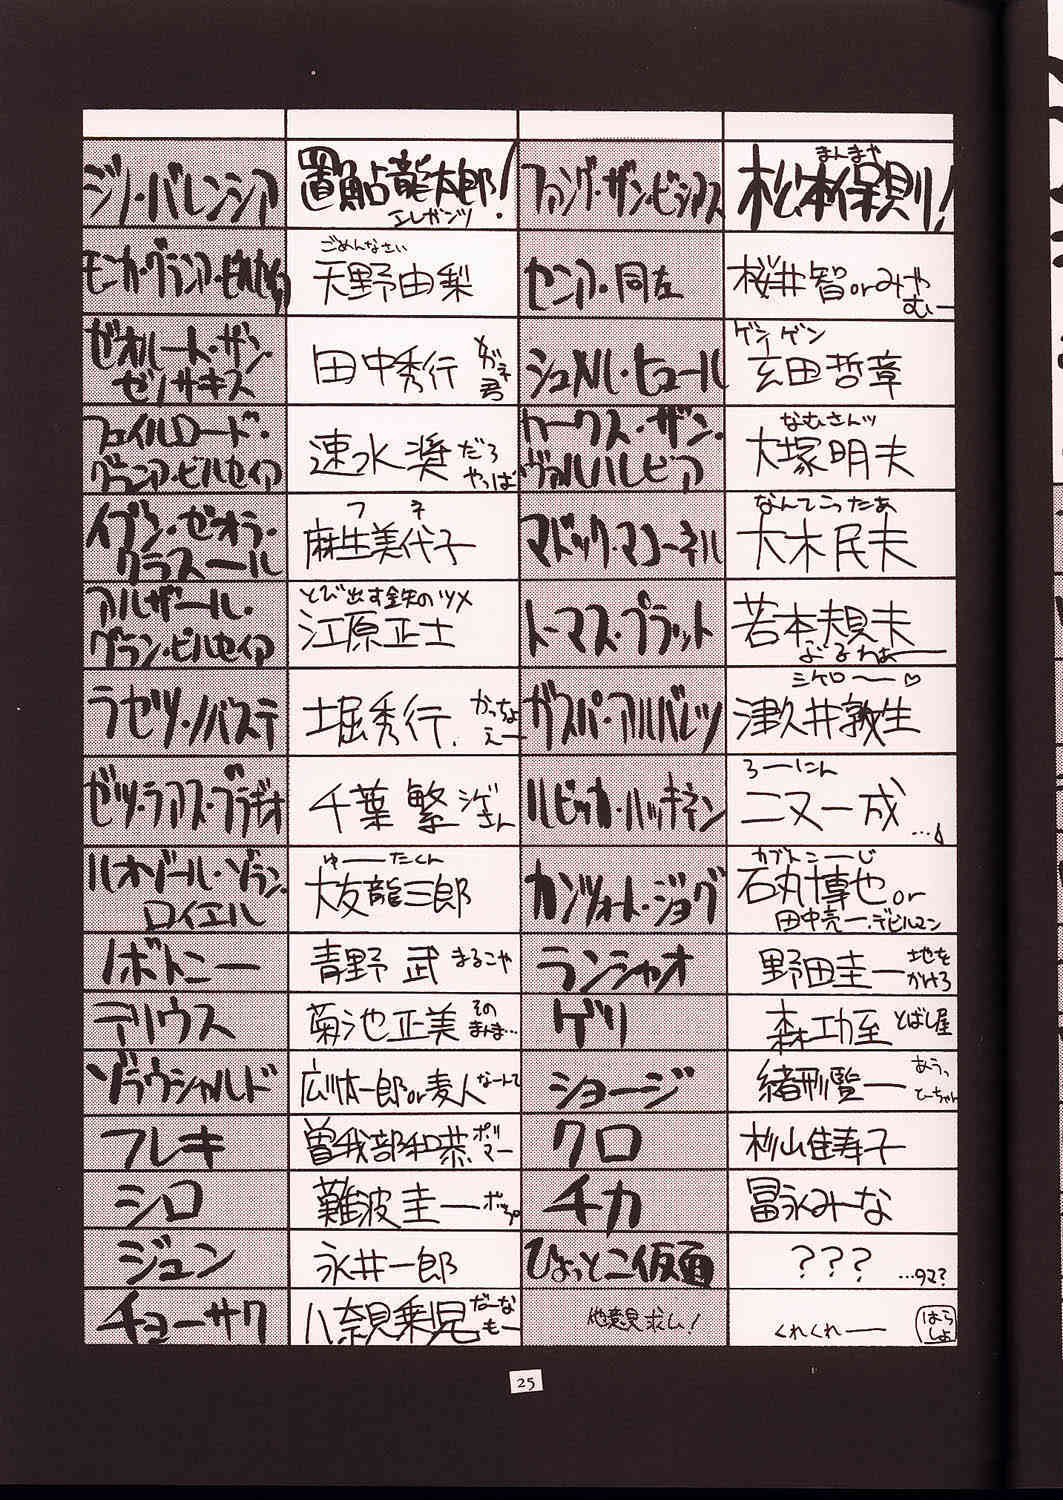 ジノ・バレンシア
置鮎龍太郎!
エレガンツ
ファング・ザン・ビシアス
まんまや
松本保則!
モニカ・グランア・ビルセイア
ごめんなさい
天野由梨
センア・同左
桜井智orみや
むー
ゼオルート・ザン・
ゼノサキス
田中秀行
めがネ君
シュメル・ヒュール
ゲン・ゲン
玄田哲章
フェイルロード・
グランア・ビルセイア
速水奨だろ
やっぱ
カークス・ザン・
ヴァルハレビア
なむさんッ
大塚明夫
イブン・ゼオラ・
クラスール
フネ
麻生美代子
マドック・マコーネル
なんてこったあ
大木民夫
アルザール・
グラン・ビルセイア
とび出す鉄のツメ
江原正士
トーマス・プラット
若本規夫
ぶるわぁー
ラセツ・ノバステ
堀秀行.
かっちょ
えー
ガスパ・アルバレツ
シゲロー♡
津久井敦生
ゼツ・ラアス・ブラギオ
千葉繁 シゲさん
ルビッカ・ハッキネン
ろーにん
二又一成
ハオゾール・ゾラン・
ロイエル
ゆーたくん
大友龍三郎
カンツォート・ジョグ
カブトこーじ
石丸博也or
田中亮一・デビルマン
ノボトニー
青野武 まるこや
ランシャオ
野田圭一 地を
かけろ
デリウス
菊池正美 その
まんま…
ゲリ
森功至 とばし屋
ゾラウシャルド
広川太一郎or麦人 なーんて
ショージ
緒形賢一 あうっ
てーちゃん
フレキ
曽我部和恭 ポリマー
クロ
杉山佳寿子
シロ
難波圭一 ポップ
チカ
冨永みーな
ジュン
永井一郎
ひょっとこ仮面
???
…タマ?
チョーサク
八奈見乗児 だーな
もー
他意見求ム!
くれくれー
はら
しょ
25